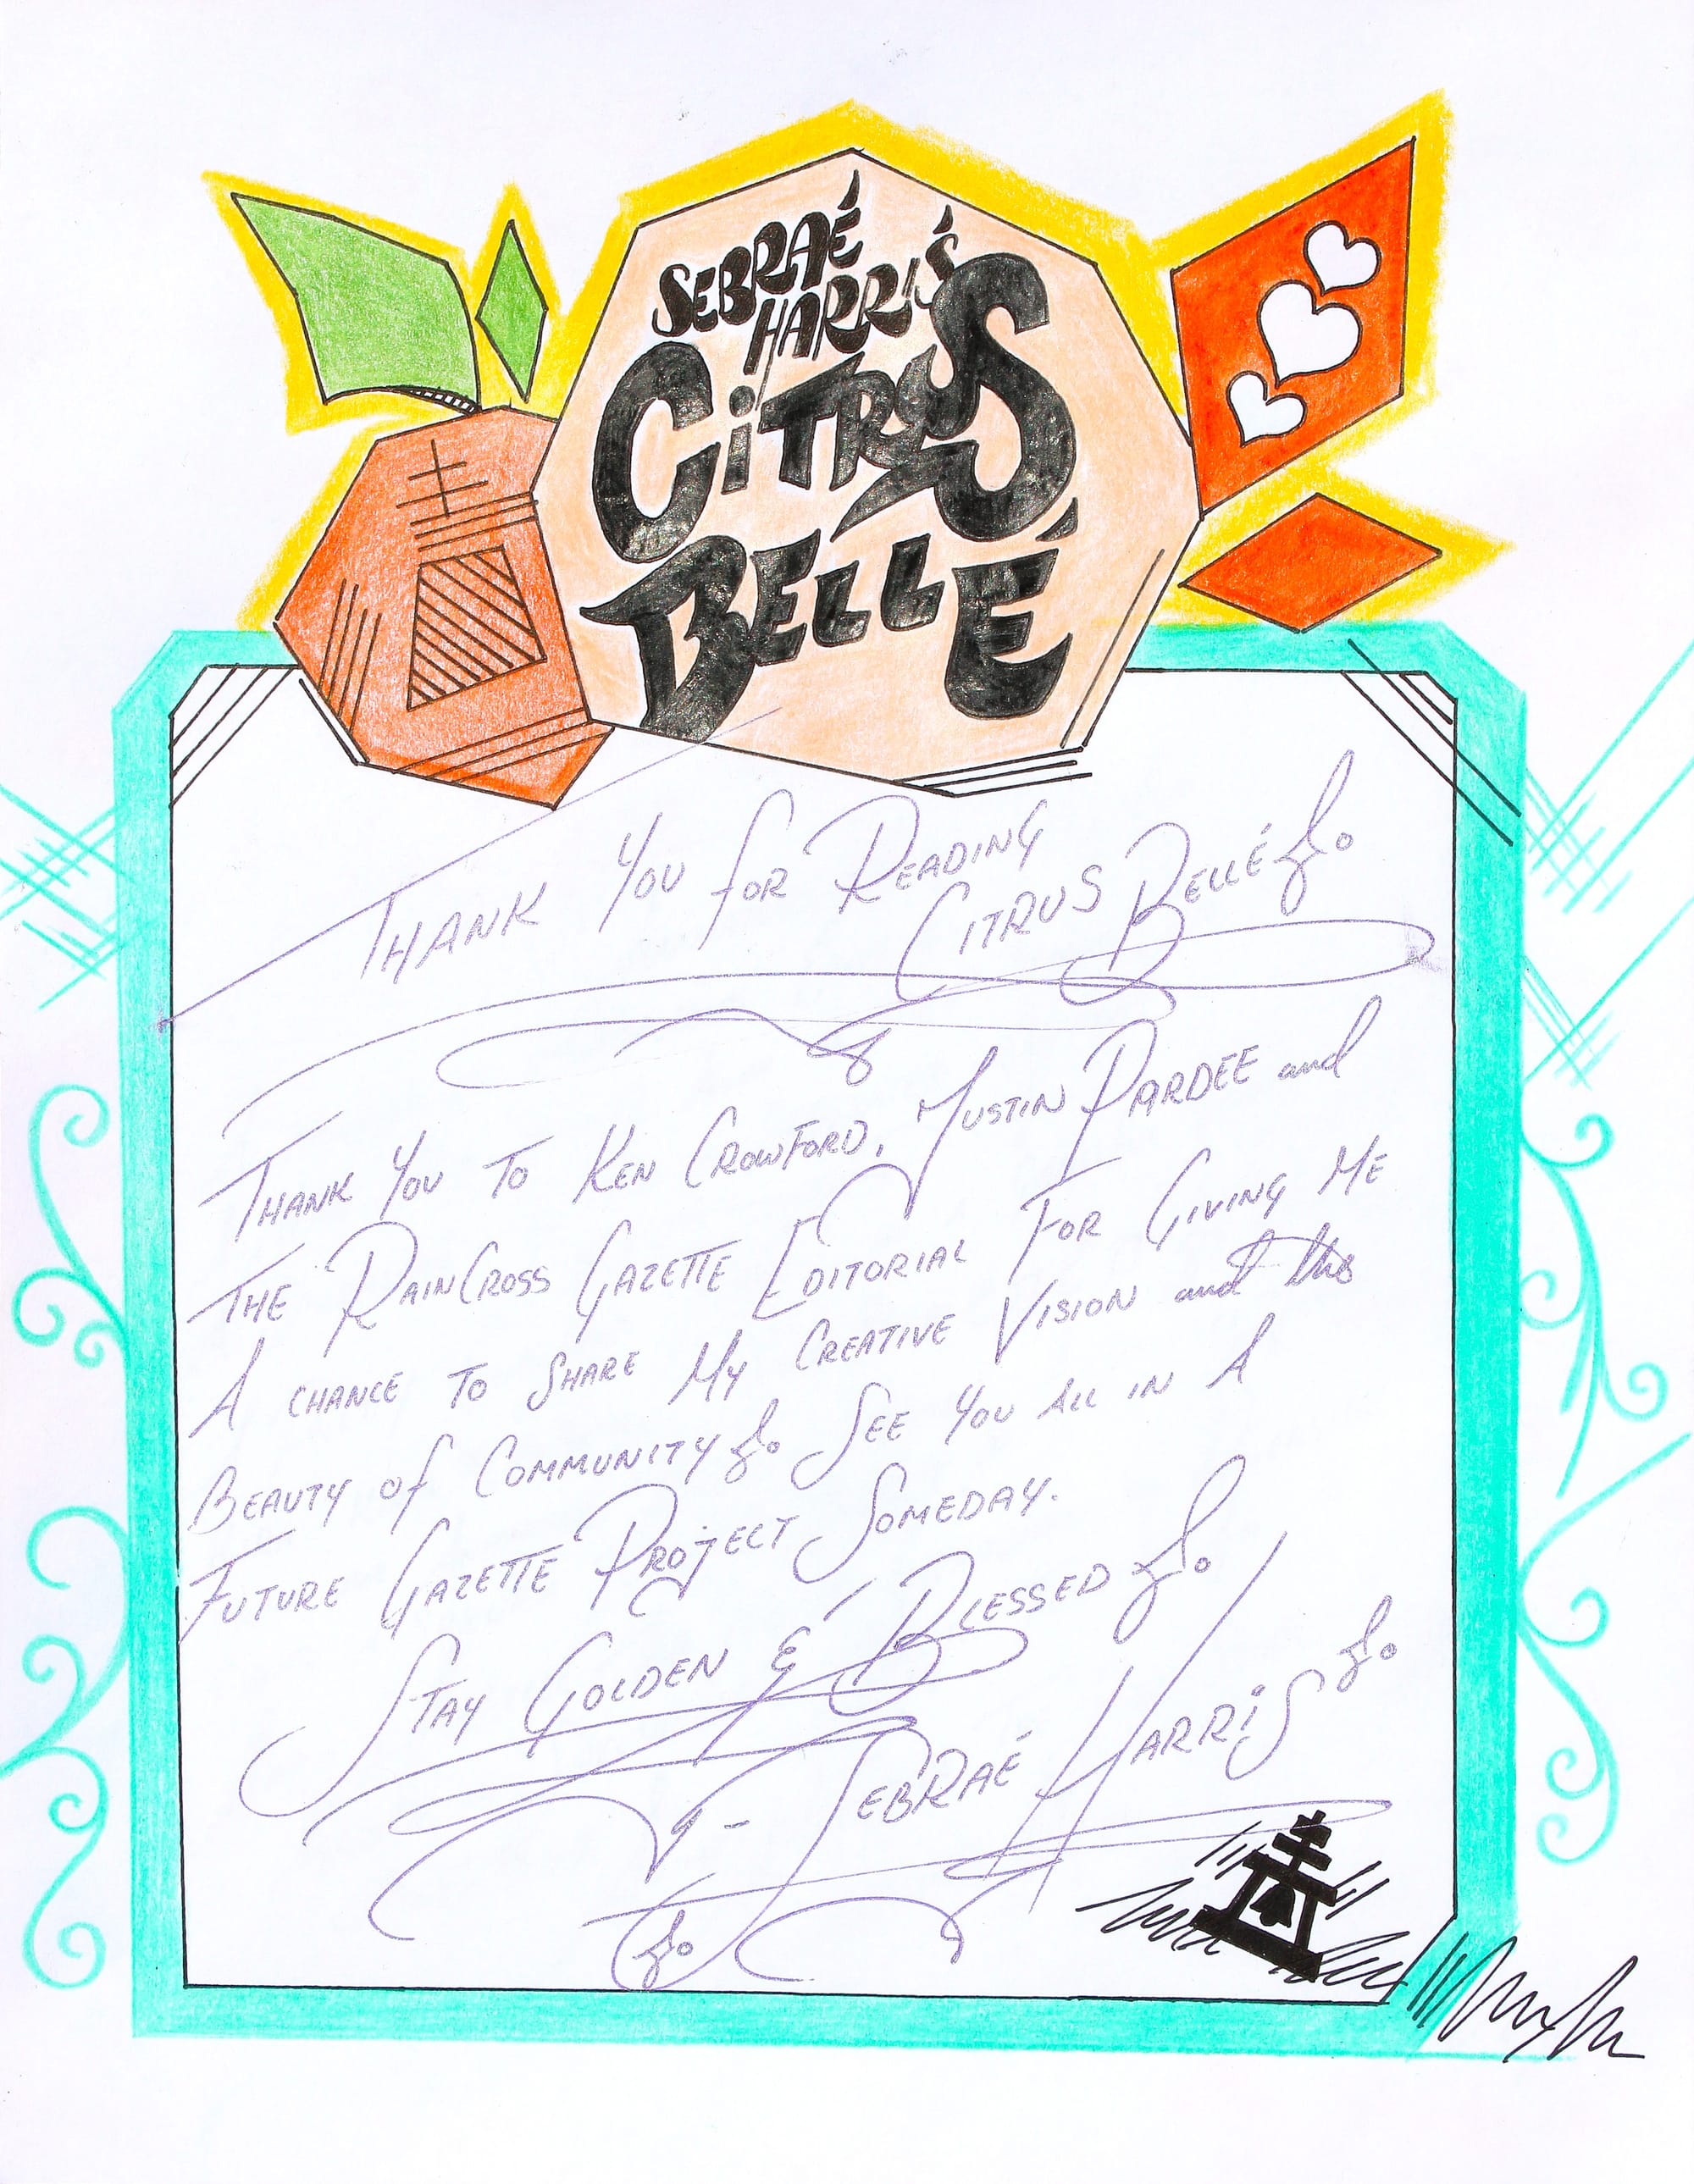 SEBRAÉ
HARRIS'S
CiTRUS
BELLÉ
THANK YOU for READING
CITRUS BELLÉ
THANK YOU TO KEN CROWFORD, JUSTIN PARDEE and
THE RAINCROSS GAZETTE EDITORIAL FOR GIVING ME
A CHANCE TO SHARE MY CREATIVE VISION and the
BEAUTY of COMMUNITY SEE YOU ALL IN A
FUTURE GAZETTE PROJECT SOMEDAY.
STAY GOLDEN & BLESSED
- SEBRAÉ HARRiS